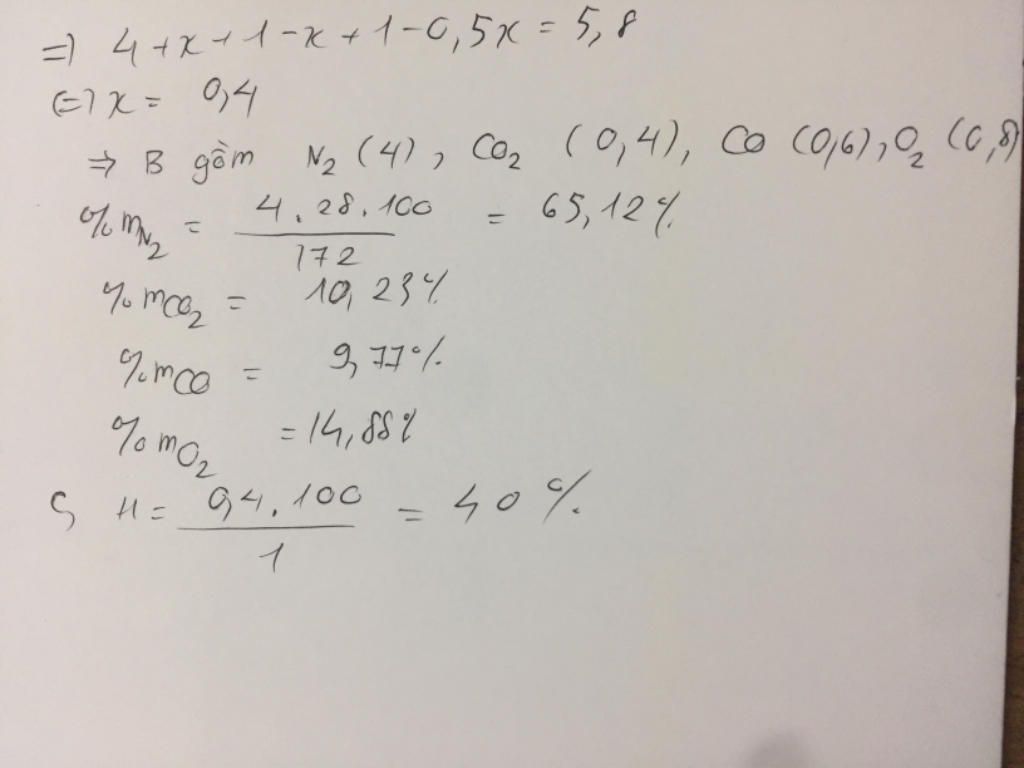 => 4 + x + 1 - x + 1 - 0,5x = 5,8
<=> x = 0,4
=> B gồm N2 (4), CO2 (0,4), CO (0,6), O2 (0,8)
%mN2 = 4.28.100/172 = 65,12%
%mCO2 = 10,23%
%mCO = 9,77%
%mO2 = 14,88%
H = 0,4.100/1 = 40%